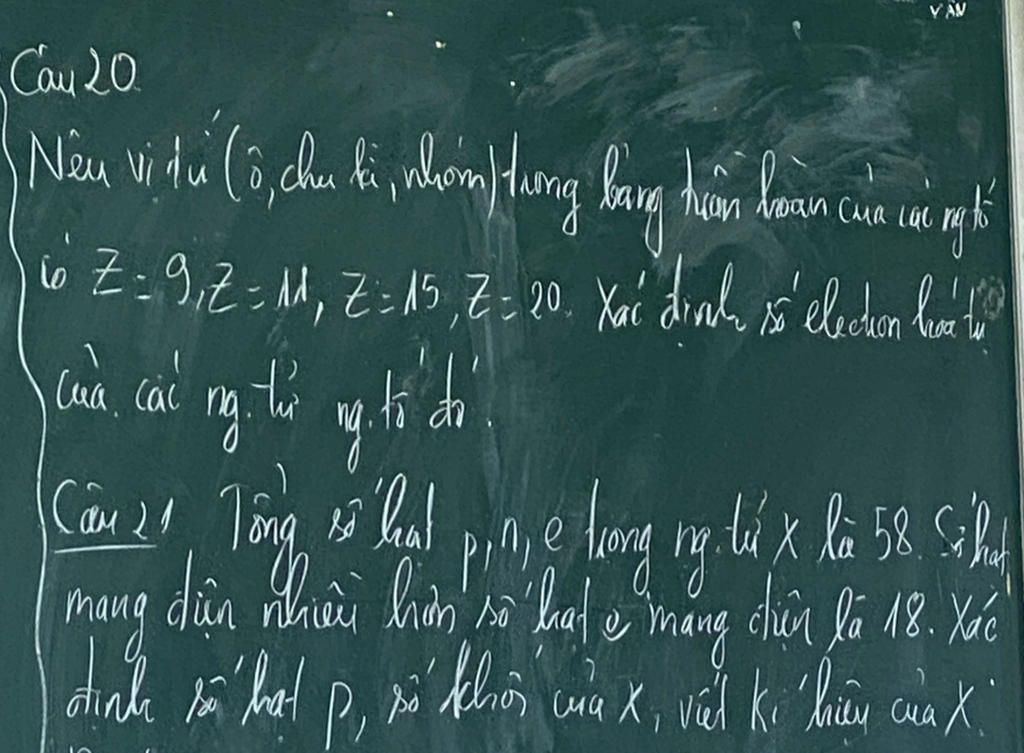 VÂN
Câu 20
Nêu vị trí (ô, chu kì, nhóm) trong bảng tuần hoàn của các ng tố
có Z = 9, Z = 11, Z = 15, Z = 20. Xác định số electron hoá trị
của các ng. tử ng. tố đó.
Câu 21 Tổng số hạt p, n, e trong ng. tử X là 58. Số hạt
mang điện nhiều hơn số hạt o mang điện là 18. Xác
định số hạt p, số khối của X, viết kí hiệu của X.